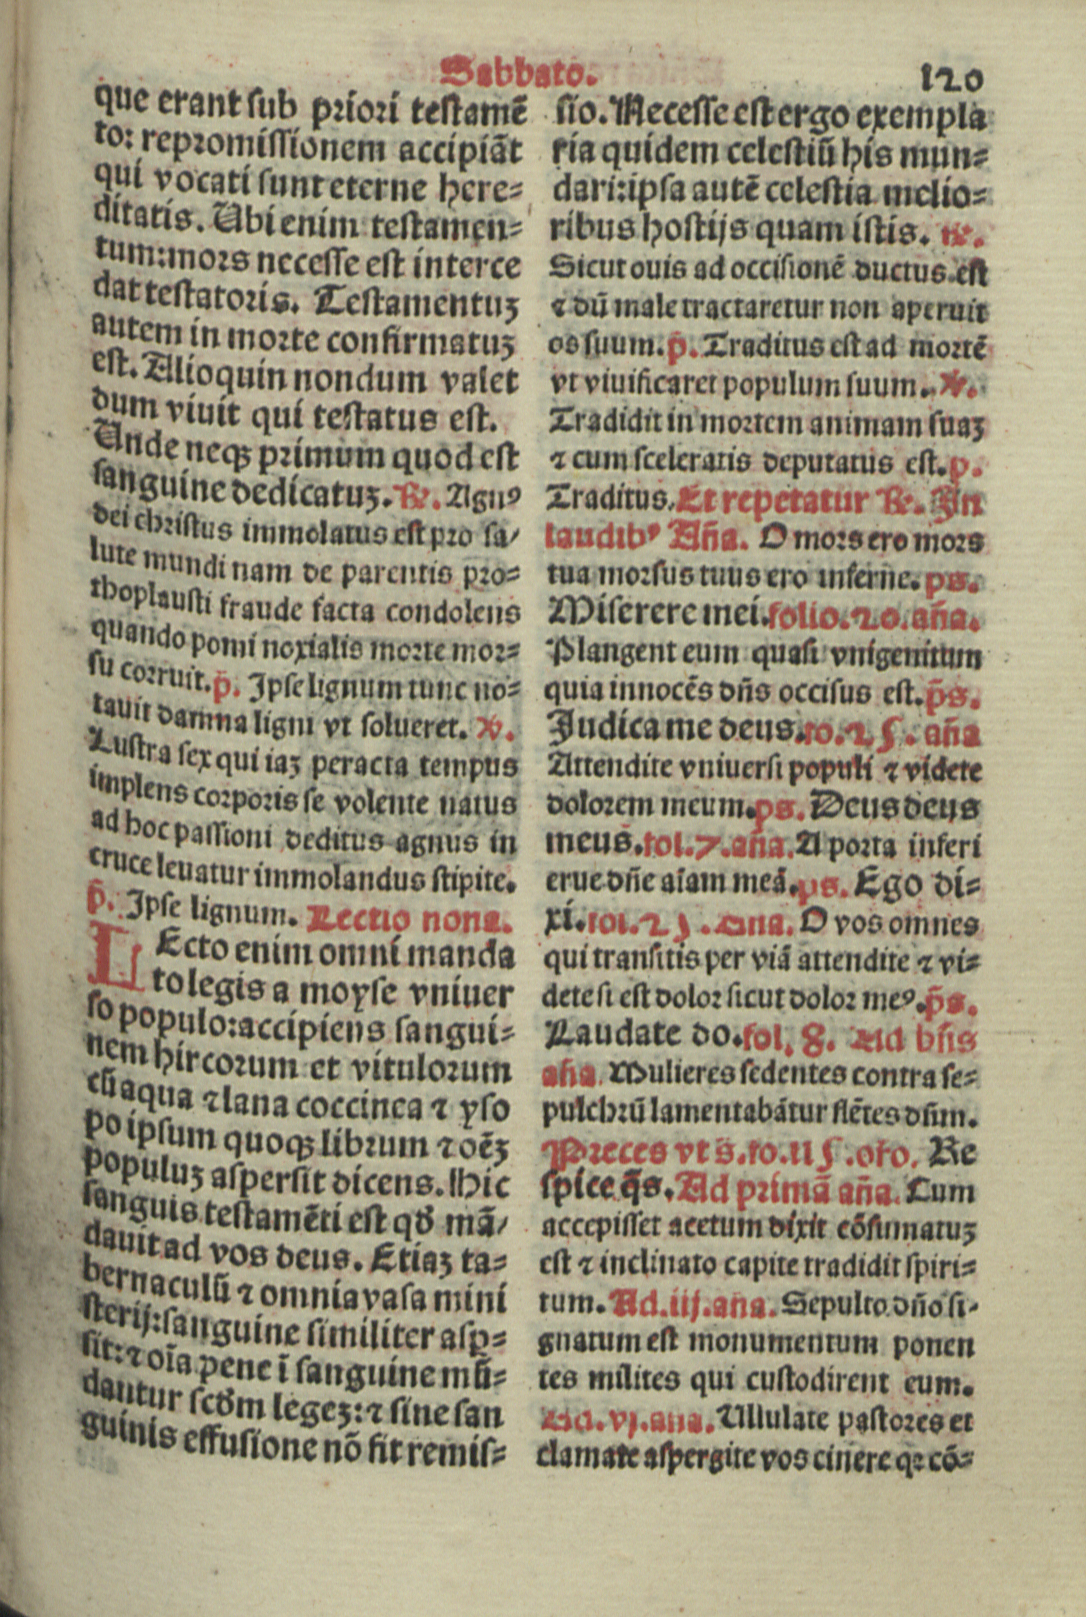 Sabbato. 120
que erant sub priori testamē
to: repromissionem accipiāt
qui vocati sunt eterne here-
ditatis. Ubi enim testamen-
tum: mors necesse est interce
dat testatoris. Testamentuꝫ
autem in morte confirmatuꝫ
est. Alioquin nondum valet
dum viuit qui testatus est.
Unde neqꝫ primum quod est
sanguine dedicatuꝫ. ℟. Agnꝰ
dei christus immolatus est pro sa-
lute mundi nam de parentis pro-
thoplausti fraude facta condolens
quando pomi noxialis morte mor-
su corruit. p̄. Ipse lignum tunc no-
tauit damna ligni vt solueret. ℣.
Lustra sex qui iaꝫ peracta tempus
implens corporis se volente natus
ad hoc passioni deditus agnus in
cruce leuatur immolandus stipite.
p̄. Ipse lignum. Lectio nona.
LEcto enim omni manda
to legis a moyse vniuer
so populo: accipiens sangui-
nem hircorum et vitulorum
cū aqua ⁊ lana coccinea ⁊ yso
po ipsum quoqꝫ librum ⁊ oēꝫ
populuꝫ aspersit dicens. Hic
sanguis testamēti est qđ mā-
dauit ad vos deus. Etiaꝫ ta-
bernaculū ⁊ omnia vasa mini
sterij: sanguine similiter asp-
sit: ⁊ oīa pene ī sanguine mū-
dantur scđm legeꝫ: ⁊ sine san
guinis effusione nō fit remis-
sio. Necesse est ergo exempla
ria quidem celestiū his mun-
dari: ipsa autē celestia melio-
ribus hostijs quam istis. ℟.
Sicut ouis ad occisionē ductus est
⁊ dū male tractaretur non aperuit
os suum. p̄. Traditus est ad mortē
vt viuificaret populum suum. ℣.
Tradidit in mortem animam suaꝫ
⁊ cum sceleratis deputatus est. p.
Traditus. Et repetatur ℟. In
laudibꝰ Aña. O mors ero mors
tua morsus tuus ero inferne. ps.
Miserere mei. folio. 20. aña.
Plangent eum quasi vnigenitum
quia innocēs dñs occisus est. p̄s.
Judica me deus. fo. 25. aña
Attendite vniuersi populi ⁊ videte
dolorem meum. ps. Deus deus
meus. fol. 7. aña. A porta inferi
erue dñe aīam meā. ps. Ego di-
xi. fol. 21. aña. O vos omnes
qui transitis per viā attendite ⁊ vi-
dete si est dolor sicut dolor meꝰ. p̄s.
Laudate do. fol. 8. Ad bñs
aña. Mulieres sedentes contra se-
pulchrū lamentabātur flētes dñm.
Preces vt s. fo. 115. oro. Re
spice q̄s. Ad primā aña. Cum
accepisset acetum dixit cōsumatuꝫ
est ⁊ inclinato capite tradidit spiri-
tum. Ad. iij. aña. Sepulto dño si-
gnatum est monumentum ponen
tes milites qui custodirent eum.
Ad. vj. aña. Ullulate pastores et
clamate aspergite vos cinere qꝛ cō-